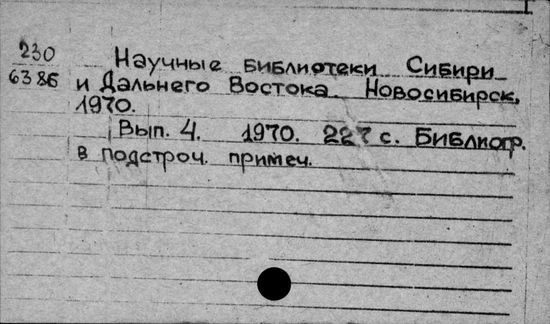 230
6386
Научные библиотеки Сибири
и Дальнего Востока. Новосибирск,
1970.
Вып. 4. 1970. 227 с. Библиогр.
в подстроч. примеч.